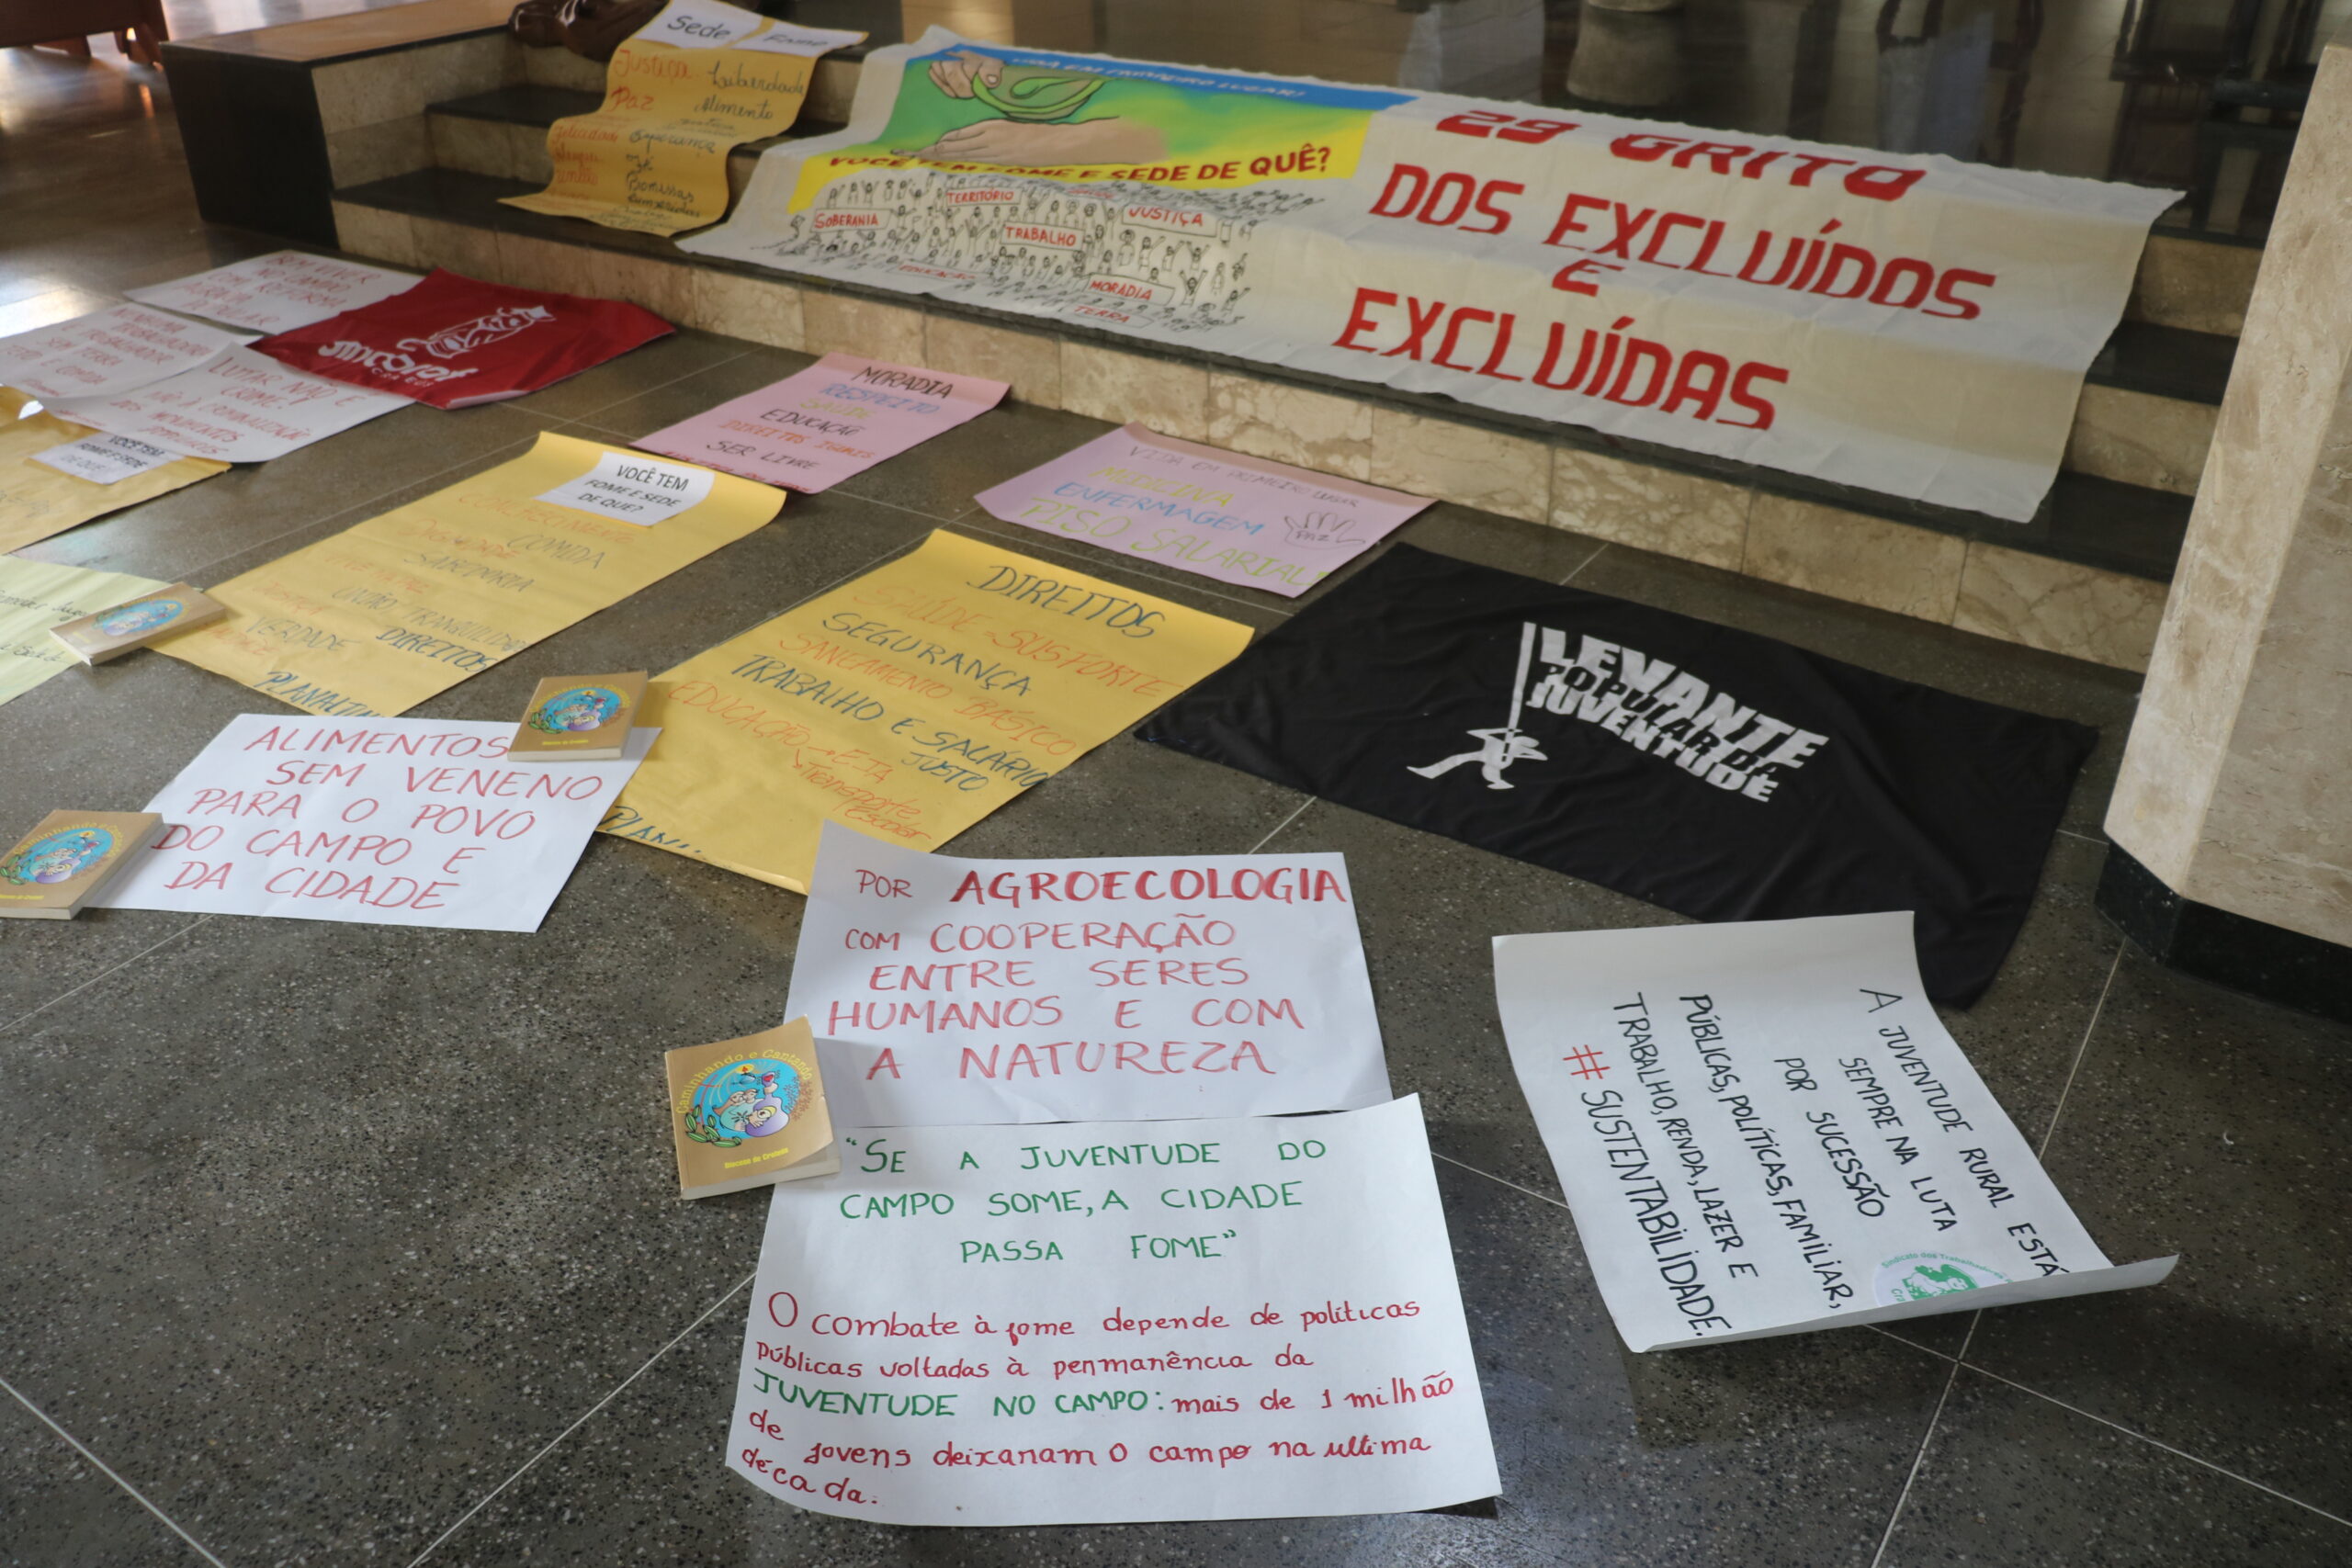 Sede
Fome
Justiça Liberdade
Paz Alimento
Esperança
VIDA EM PRIMEIRO LUGAR!
VOCÊ TEM FOME E SEDE DE QUÊ?
TERRITÓRIO
SOBERANIA
JUSTIÇA
TRABALHO
EDUCAÇÃO
MORADIA
TERRA
29 GRITO
DOS EXCLUÍDOS
E
EXCLUÍDAS
LUTAR NÃO É
CRIME.
DOS MOVIMENTOS
VOCÊ TEM
FOME E SEDE
DE QUE?
MORADIA
RESPEITO
SAÚDE
EDUCAÇÃO
DIREITOS IGUAIS
SER LIVRE
VIDA EM PRIMEIRO LUGAR
MEDICINA
ENFERMAGEM
PISO SALARIAL
PAZ
VOCÊ TEM
FOME E SEDE
DE QUE?
COMIDA
DIGNIDADE
SABEDORIA
UNIÃO TRANQUILIDADE
VERDADE DIREITOS
DIREITOS
SAÚDE - SUS FORTE
SEGURANÇA
SANEAMENTO BÁSICO
TRABALHO E SALÁRIO
JUSTO
EDUCAÇÃO → EJA
→ Transporte
Escolar
LEVANTE
POPULAR DA
JUVENTUDE
ALIMENTOS
SEM VENENO
PARA O POVO
DO CAMPO E
DA CIDADE
POR AGROECOLOGIA
COM COOPERAÇÃO
ENTRE SERES
HUMANOS E COM
A NATUREZA
Caminhando e Cantando
Diocese de Crateús
"SE A JUVENTUDE DO
CAMPO SOME, A CIDADE
PASSA FOME"
O combate à fome depende de políticas
públicas voltadas à penmanência da
JUVENTUDE NO CAMPO: mais de 1 milhão
de jovens deixanam o campo na ultima
década.
A JUVENTUDE RURAL ESTÁ
SEMPRE NA LUTA
POR SUCESSÃO
PÚBLICAS, POLÍTICAS, FAMILIAR,
TRABALHO, RENDA, LAZER E
# SUSTENTABILIDADE.
Sindicato dos Trabalhadores